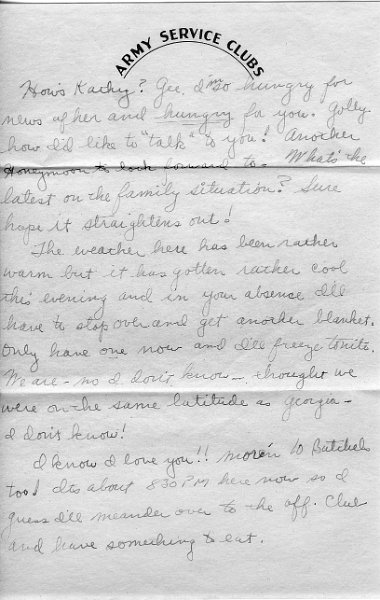 ARMY SERVICE CLUBS
How's Kathy? Gee, I'm so hungry for
news of her and hungry for you. Golly
how I'd like to "talk" to you! Another
Honeymoon to look forward to. What's the
latest on the family situation? Sure
hope it straightens out!
The weather here has been rather
warm but it has gotten rather cool
this evening and in your absence I'll
have to stop over and get another blanket.
Only have one now and I'll freeze tonite.
We are - no I don't know -, thought we
were on the same latitude as Georgia -
I don't know!
I know I love you!! more'n 10 Butchels
too! Its about 830 PM here now so I
guess I'll meander over to the off. Club
and have something to eat.